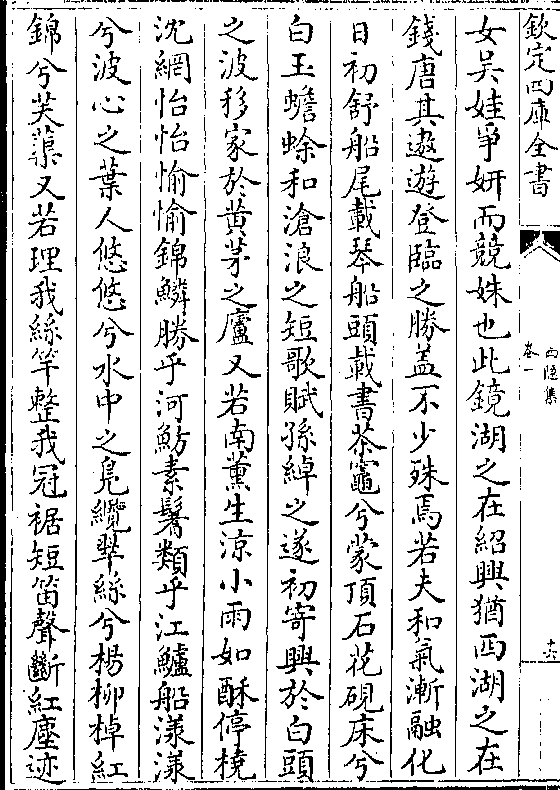 欽定四庫全書
西陂集
卷一
女吴娃爭妍而競姝也此鏡湖之在紹興猶西湖之在
錢唐其遨遊登臨之勝盖不少殊焉若夫和氣漸融化
日初舒船尾載琴船頭載書茶竈兮蒙頂石花硯床兮
白玉蟾蜍和滄浪之短歌賦孫綽之遂初寄興於白頭
之波移家於黄茅之廬又若南薰生涼小雨如酥停橈
沈網怡怡愉愉錦鱗勝乎河魴素鬐類乎江鱸船漾漾
兮波心之葉人悠悠兮水中之鳬纜犖絲兮楊柳棹紅
錦兮芙蕖又若理我絲竿整我冠裾短笛聲斷紅塵迹